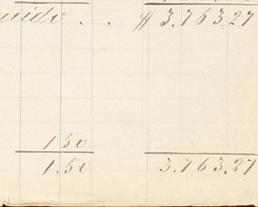 . . $ 3.763.27
1 50
1.50 3.763.27